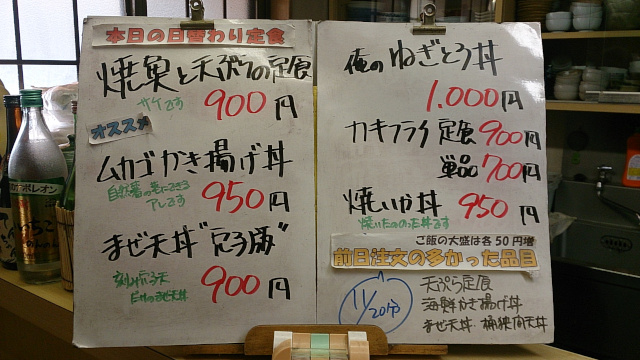 本日の日替わり定食
焼魚と天ぷらの定食
サケです
900円
オススメ
ムカゴかき揚げ丼
自然薯の葉にできる
アレです
950円
まぜ天丼
900円
俺のねぎとろ丼
1.000円
カキフライ定食900円
単品700円
焼いか丼 950円
焼いたのの丼です
ご飯の大盛は各50円増
前日注文の多かった品目
11/20分
天ぷら定食
海鮮かき揚げ丼
まぜ天丼 桶狭間天丼